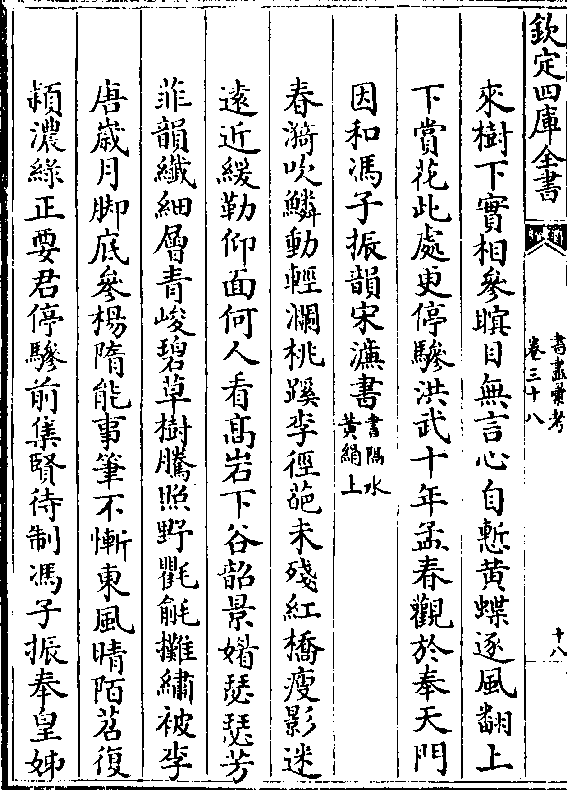 欽定四庫全書
書畫彙考
卷三十八
十八
來樹下實相參瞑目無言心自慙黃蝶逐風翻上
下賞花此處更停驂洪武十年孟春觀於奉天門
因和馮子振韻宋濂書書隔水黃絹上
春漪吹鱗動輕瀾桃蹊李徑葩未殘紅橋瘦影迷
遠近緩勒仰面何人看高岩下谷韶景媚瑟瑟芳
菲韻纖細層青峻碧草樹騰照野氍毹攤繡被李
唐歲月脚底參楊隋能事筆不慚東風晴陌苕復
頴濃綠正要君停驂前集賢待制馮子振奉皇姊